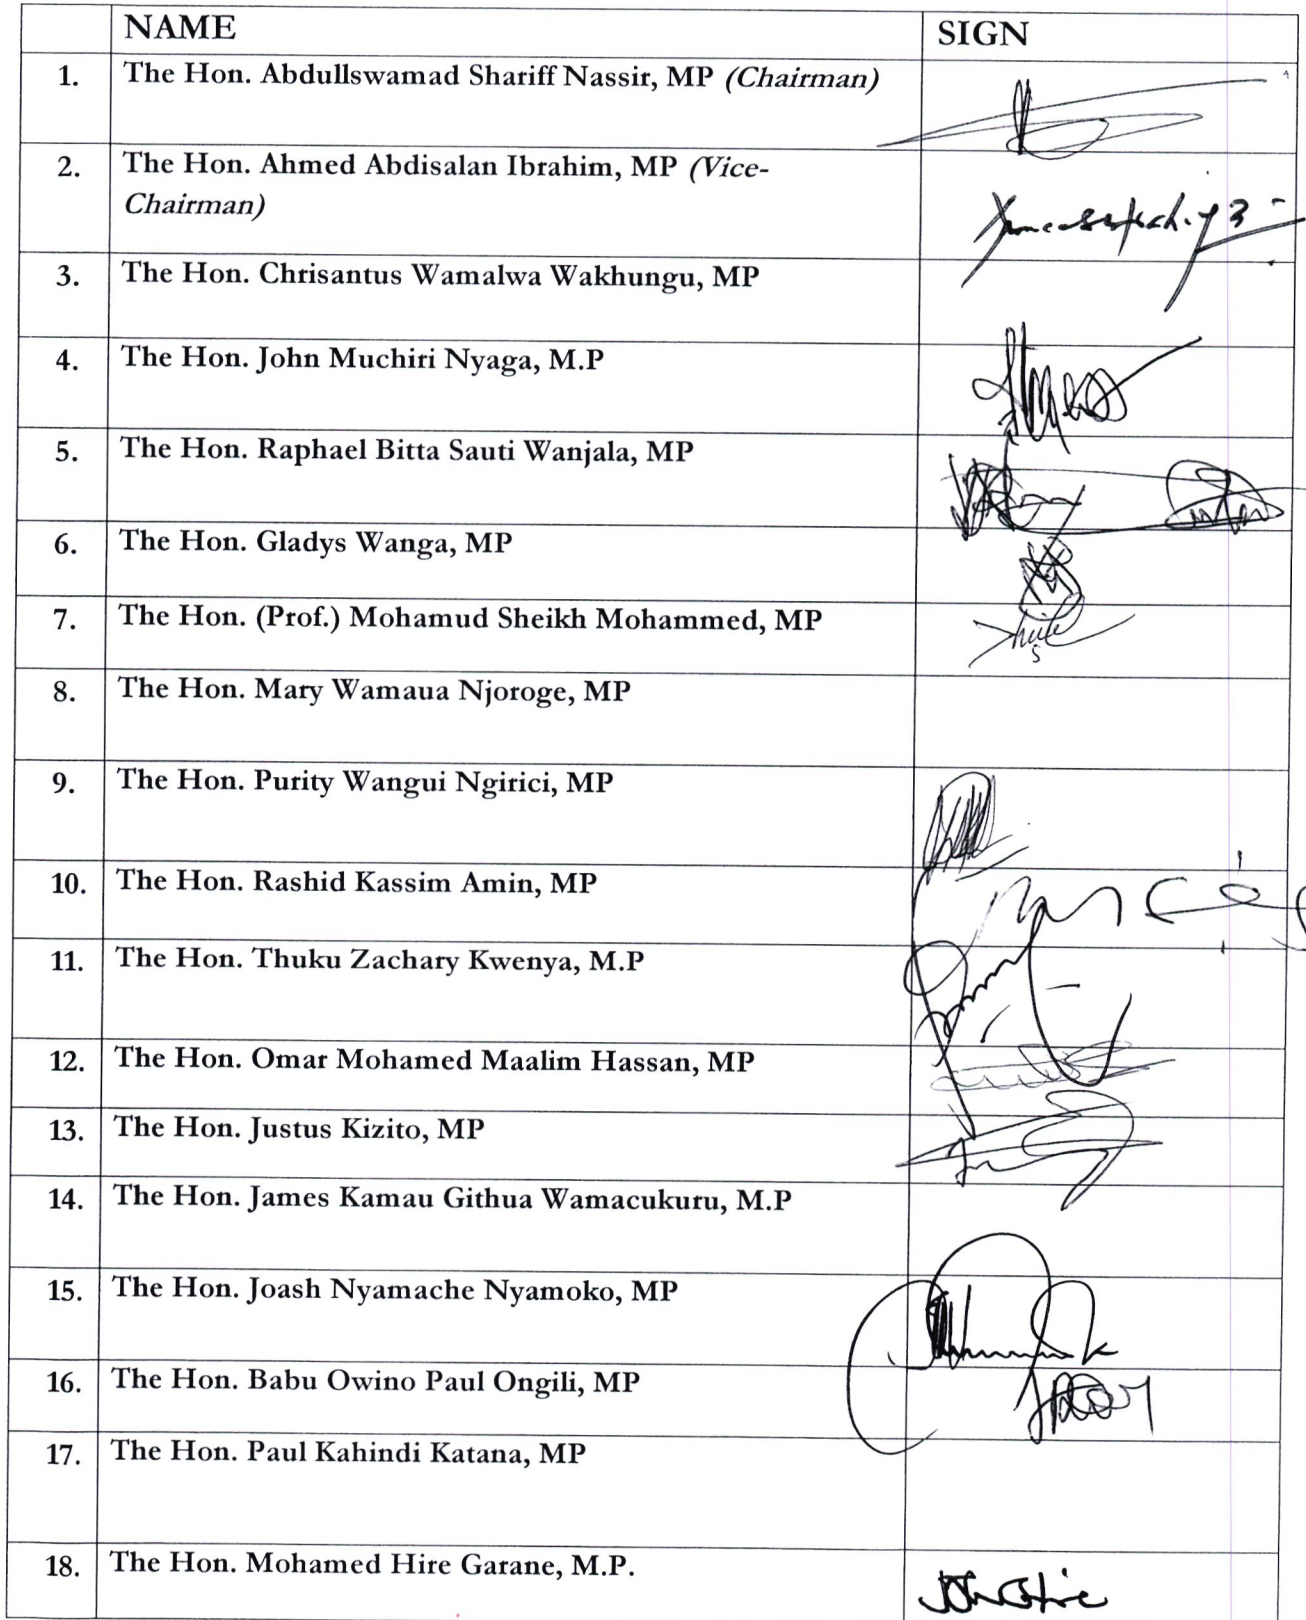 NAME SIGN
1. The Hon. Abdullswamad Shariff Nassir, MP (Chairman)
2. The Hon. Ahmed Abdisalan Ibrahim, MP (Vice-
Chairman)
3. The Hon. Chrisantus Wamalwa Wakhungu, MP
4. The Hon. John Muchiri Nyaga, M.P
5. The Hon. Raphael Bitta Sauti Wanjala, MP
6. The Hon. Gladys Wanga, MP
7. The Hon. (Prof.) Mohamud Sheikh Mohammed, MP
8. The Hon. Mary Wamaua Njoroge, MP
9. The Hon. Purity Wangui Ngirici, MP
10. The Hon. Rashid Kassim Amin, MP
11. The Hon. Thuku Zachary Kwenya, M.P
12. The Hon. Omar Mohamed Maalim Hassan, MP
13. The Hon. Justus Kizito, MP
14. The Hon. James Kamau Githua Wamacukuru, M.P
15. The Hon. Joash Nyamache Nyamoko, MP
16. The Hon. Babu Owino Paul Ongili, MP
17. The Hon. Paul Kahindi Katana, MP
18. The Hon. Mohamed Hire Garane, M.P.